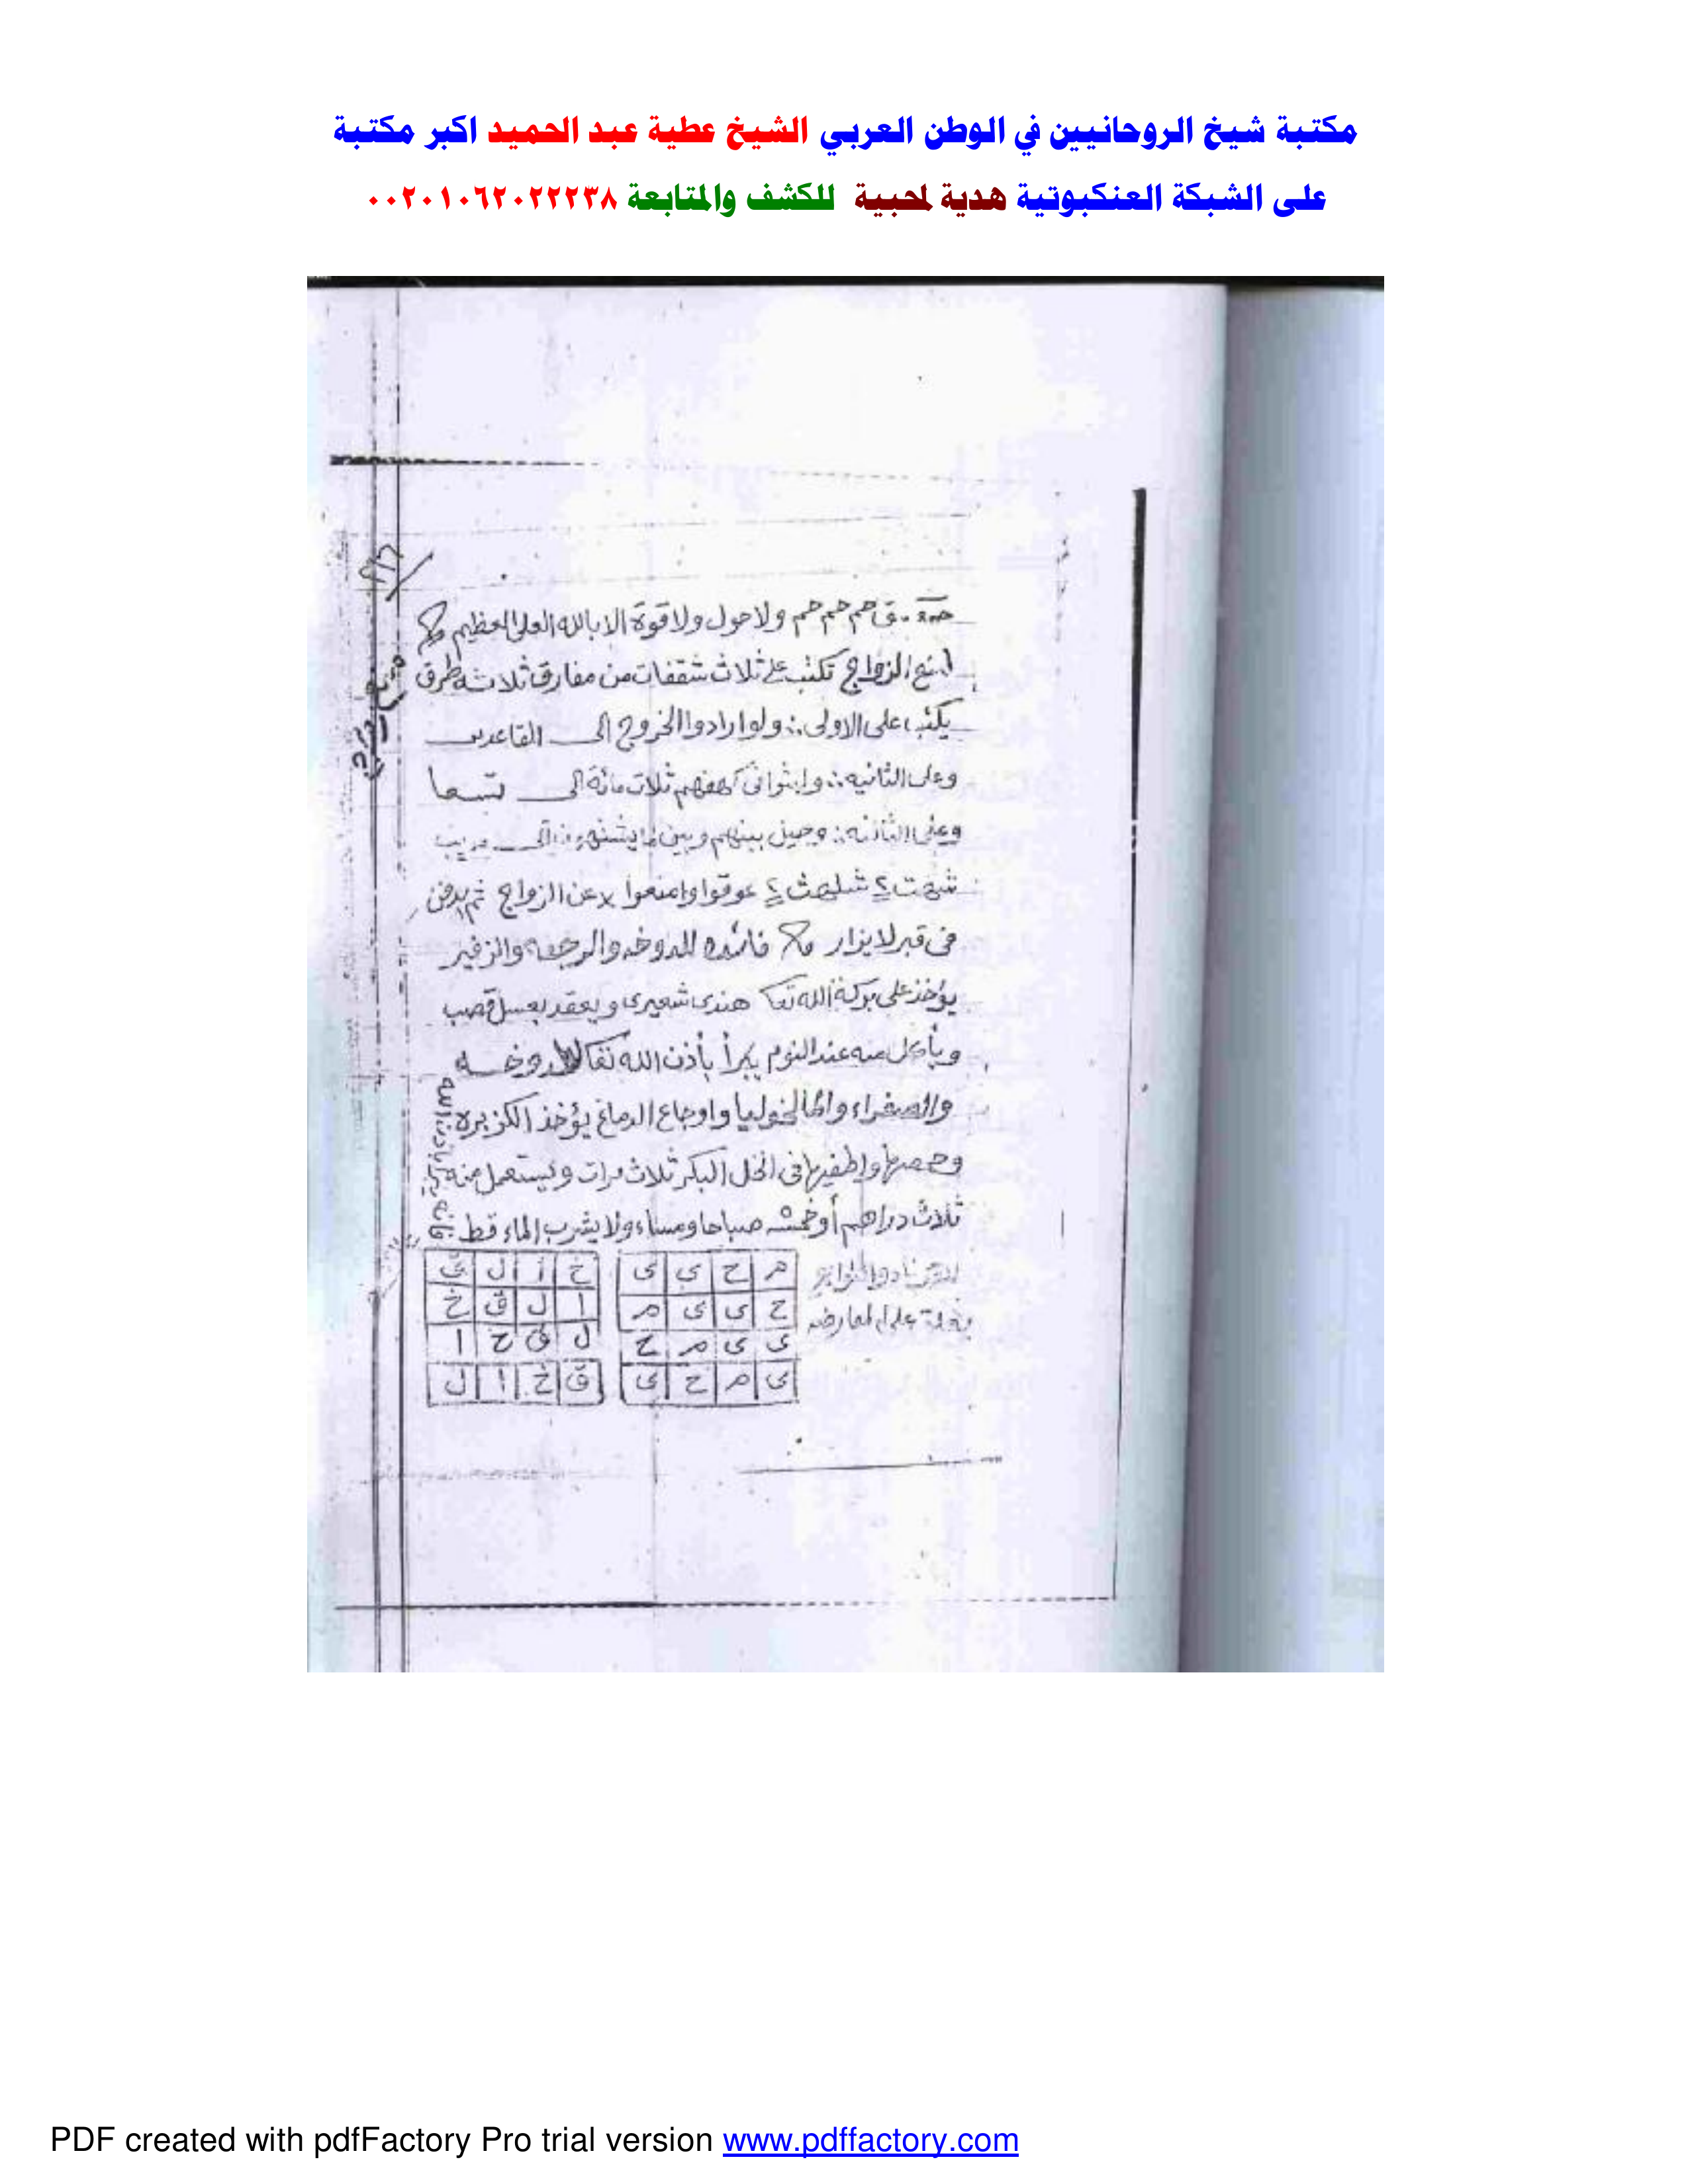 مكتبة شيخ الروحانيين في الوطن العربي الشيخ عطية عبد الحميد اكبر مكتبة
على الشبكة العنكبوتية هدية لمحبية للكشف والمتابعة ٠٠٢٠١٠٦٢٠٢٢٢٣٨
حم حم حم ولا حول ولا قوة الا بالله العلى العظيم
الزواج تكتب على ثلاث شقفات من مفارق ثلاثه طرق
يكتب على الاولى ولو ارادوا الخروج الى القاعدين
وعلى الثانيه ولبثوا فى كهفهم ثلاث مائة الى تسعا
وعلى الثالثه وحيل بينهم وبين ما يشتهون الى مريب
عوقوا وامنعوا عن الزواج ثم يدفن
فى قبر لا يزار فائده للدوخه والرجفه والزفير
يؤخذ على بركة الله تعا هندى شعيرى ويعقد بعسل قصب
ويأكل منه عند النوم يبرأ بأذن الله تعا للدوخه
والصفراء والمالخوليا واوجاع الدماغ يؤخذ الكزبره
وحمصها واطفيها فى الخل البكر ثلاث مرات ويستعمل منه
ثلاث دراهم أو خمسه صباحا ومساء ولا يشرب الماء قط
فانه يبرأ باذن الله
م ح ى ى
خ ا ل ق
ح ى ى م
ا ل ق خ
ى ى م ح
ل ق خ ا
ى م ح ى
ق خ ا ل
PDF created with pdfFactory Pro trial version www.pdffactory.com